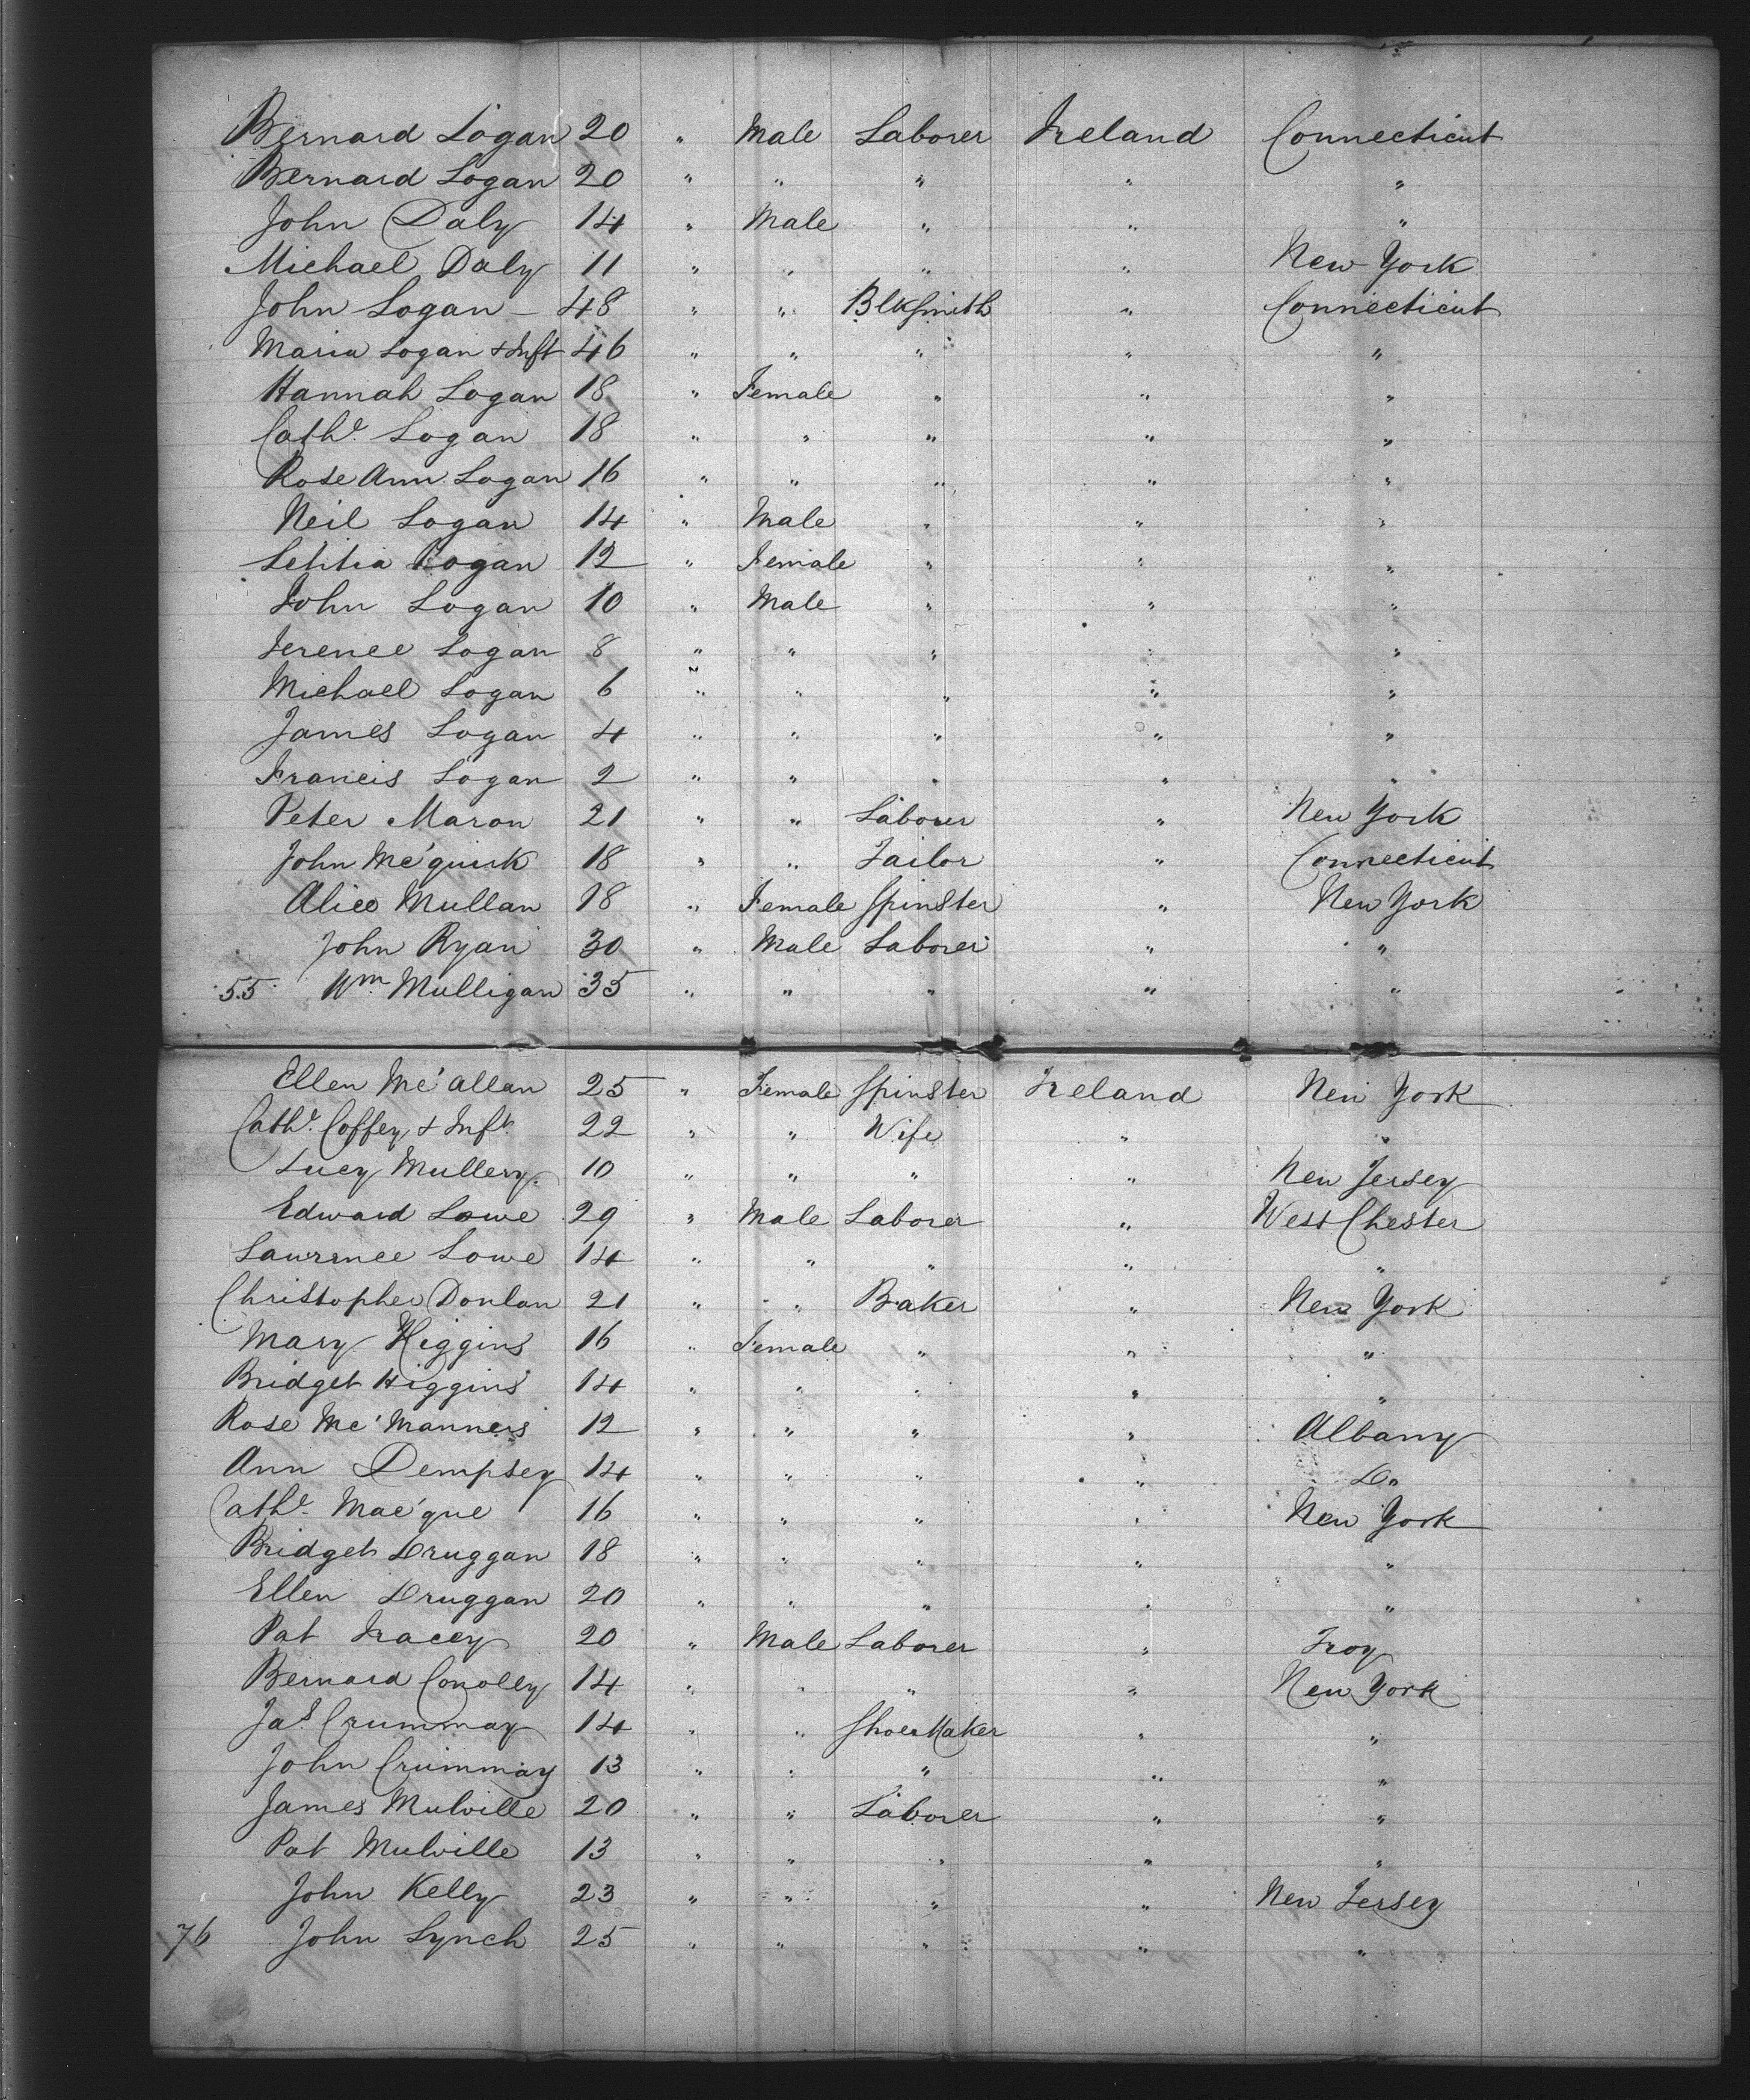 Bernard Logan 20 " Male Laborer Ireland Connecticut
Bernard Logan 20 " " " " "
John Daly 14 " Male " " "
Michael Daly 11 " " " " New York
John Logan - 48 " " BlkSmith " Connecticut
Maria Logan + Inft 46 " " " " "
Hannah Logan 18 " Female " " "
Cathe. Logan 18 " " " " "
Rose Ann Logan 16 " " " " "
Neil Logan 14 " Male " " "
Letitia Logan 12 " Female " " "
John Logan 10 " Male " " "
Terence Logan 8 " " " " "
Michael Logan 6 " " " " "
James Logan 4 " " " " "
Francis Logan 2 " " " " "
Peter Maron 21 " " Laborer " New York
John Mc'quirk 18 " " Tailor " Connecticut
Alice Mullan 18 " Female Spinster " New York
John Ryan 30 " Male Laborer " "
55 Wm. Mulligan 35 " " " " "
Ellen Mc'allan 25 " Female Spinster Ireland New York
Cathe. Coffey + Inft. 22 " " Wife " "
Lucy Mullery. 10 " " " " New Jersey
Edward Lowe 29 " Male Laborer " West Chester
Lawrence Lowe 14 " " " " "
Christopher Donlan 21 " " Baker " New York
Mary Higgins 16 " Female " " "
Bridget Higgins 14 " " " " "
Rose Mc'Manners 12 " " " " Albany
Ann Dempsey 14 " " " " Do
Cathe. Mac'que 16 " " " " New York
Bridget Druggan 18 " " " " "
Ellen Druggan 20 " " " " "
Pat Tracey 20 " Male Laborer " Troy
Bernard Conolly 14 " " " " New York
Jas Crummay 14 " " ShoeMaker " "
John Crummay 13 " " " " "
James Mulville 20 " " Laborer " "
Pat Mulville 13 " " " " "
John Kelly 23 " " " " New Jersey
76 John Lynch 25 " " " " "